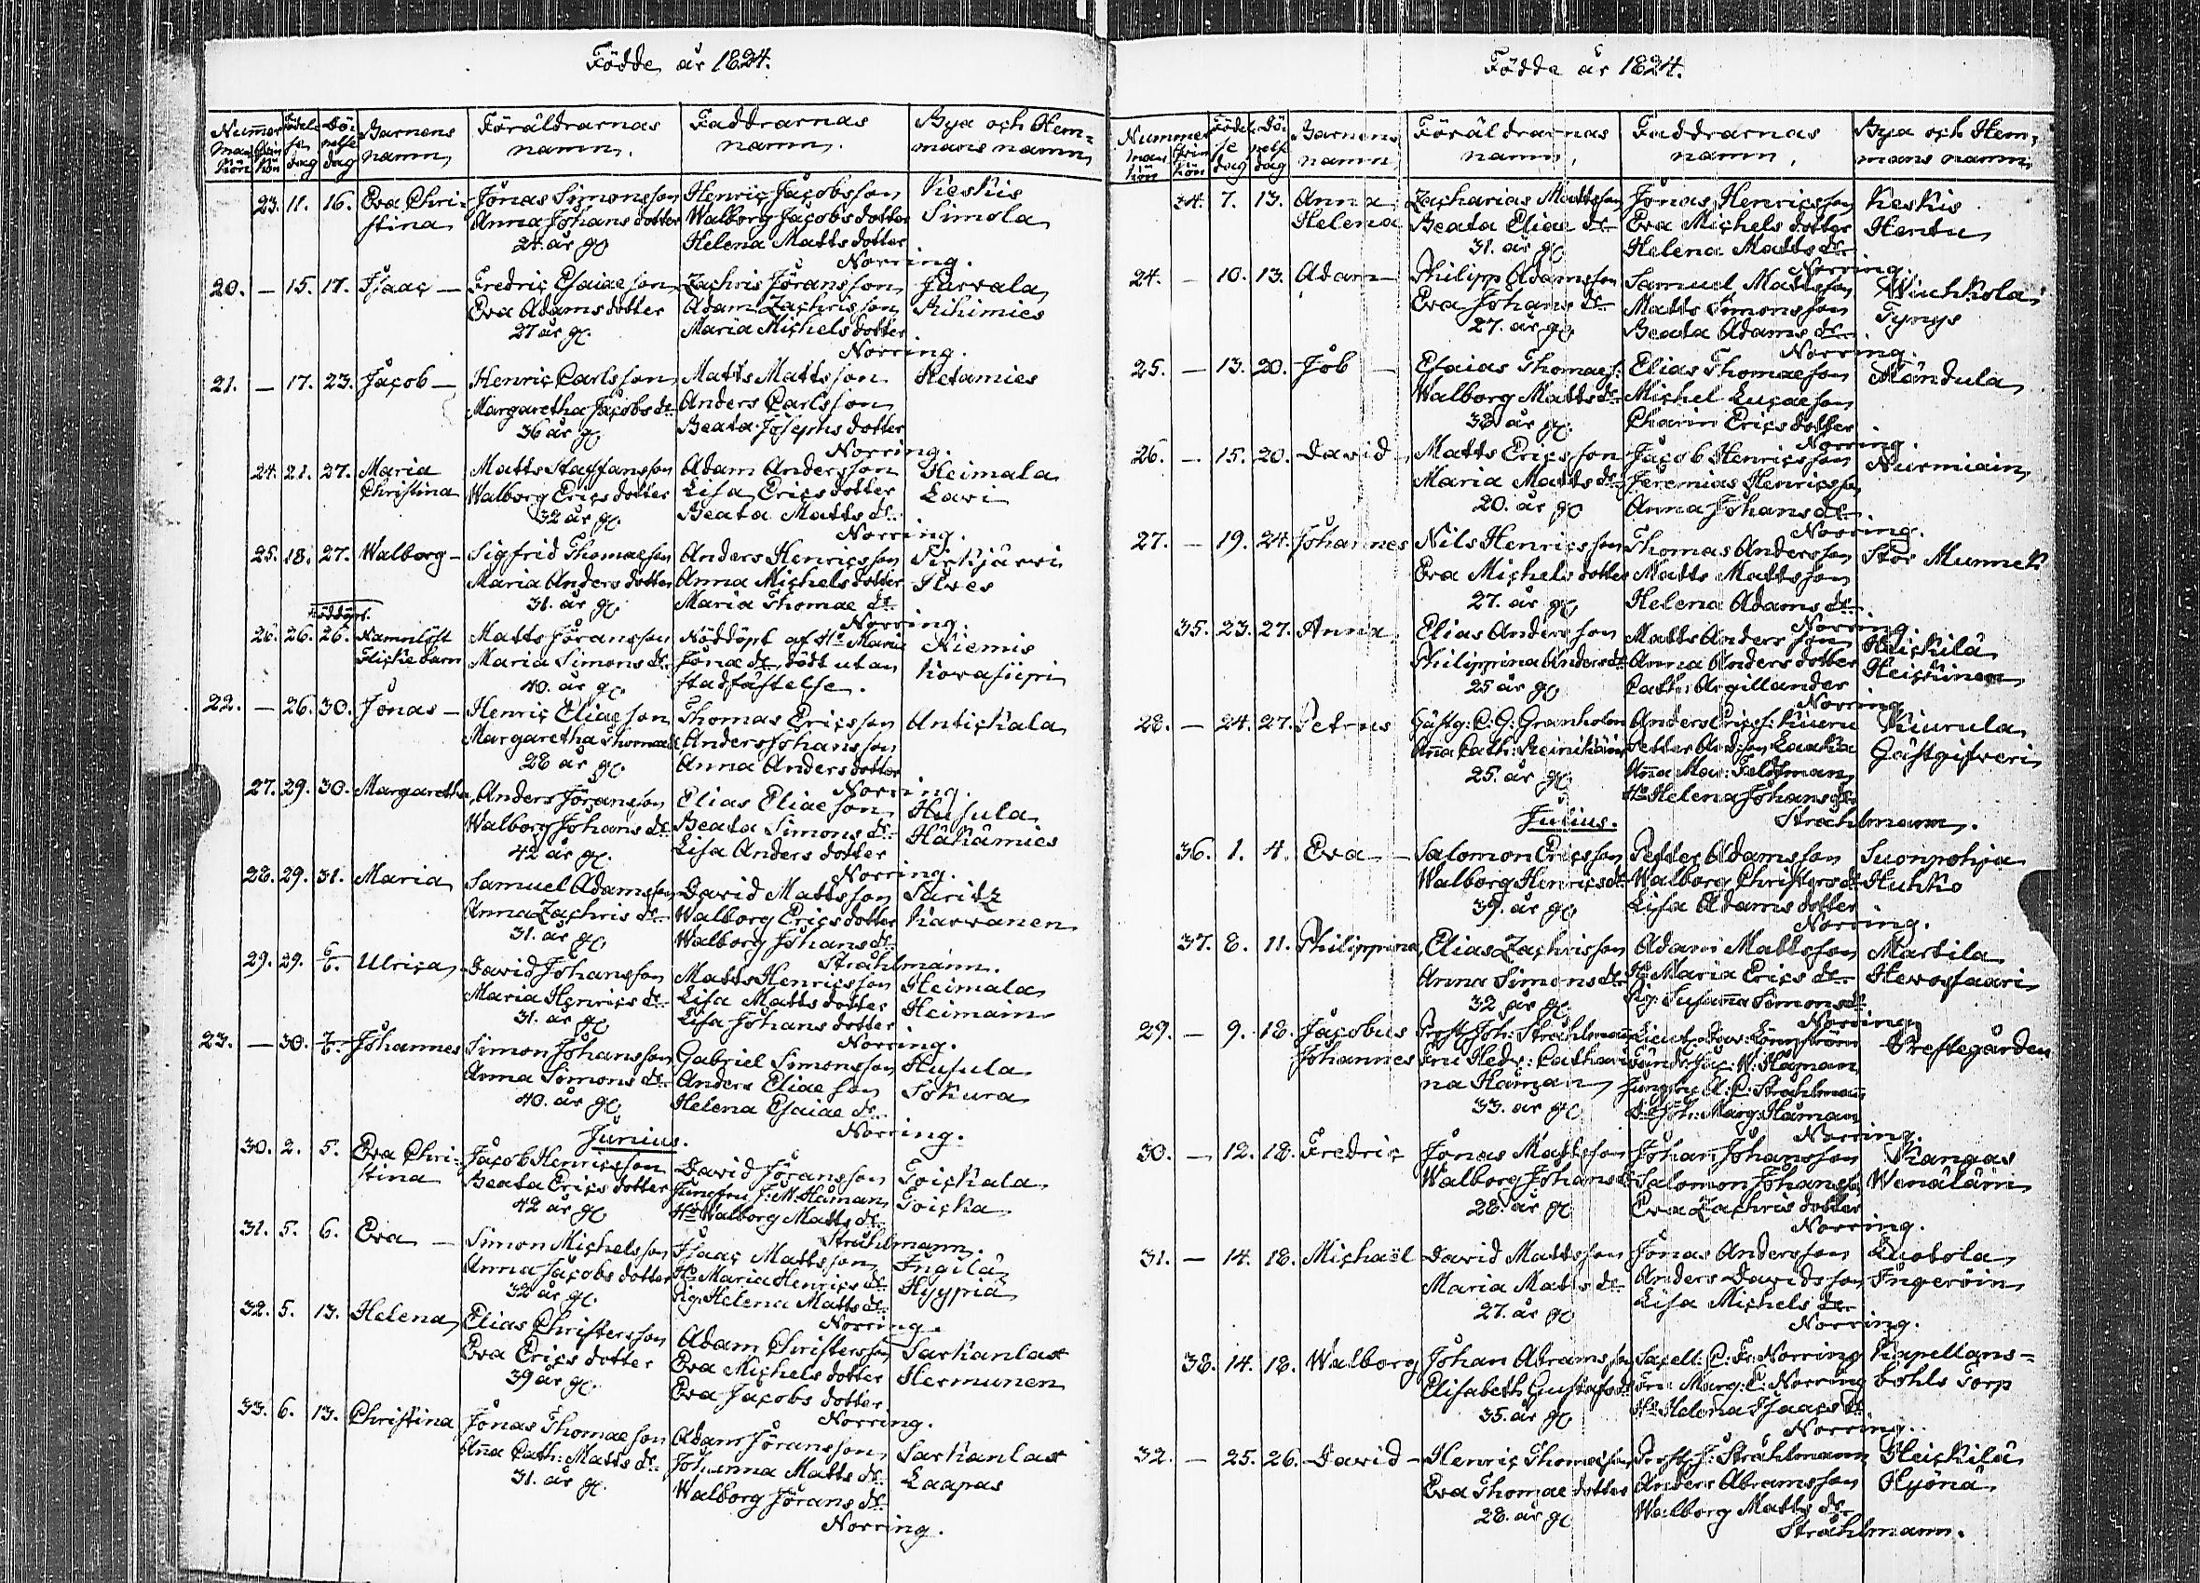 Födde år 1824.
Nummer Mankön Qvinkön Födelsedag Döpelsedag Barnens namn Föräldrarnas namn. Faddrarnas namn. Bya och Hemmans namn
23. 11. 16. Eva Chri- Jonas Simonsson Henric Jacobsson Keskis
stina Anna Johans dotter Walborg Jacobs dotter Simola
24 år gl. Helena Matts dotter
Norring.
20. — 15. 17. Isaac — Fredric Esaiaeson Zachris Jöransson Järvala
Eva Adams dotter Adam Zachrisson Rihimies
27 år gl. Maria Michels dotter
Norring.
21. — 17. 23. Jacob — Henric Carlsson Matts Mattsson Hetamies
Margaretha Jacobs dr. Anders Carlsson
36 år gl. Beata Josephs dotter
Norring.
24. 21. 27. Maria Matts Staffansson Adam Andersson Heimala
Christina Walborg Erics dotter Lisa Erics dotter Lavi
32 år gl. Beata Matts dr.
Norring.
25. 18. 27. Walborg — Sigfrid Thomaeson Anders Henricsson Pirkjärvi
Maria Anders dotter Anna Michels dotter Ilves
31. år gl. Maria Thomae dr.
Norring.
Nöddöpt.
26. 26. 26. Namnlöst Matts Jöransson Nöddöpt af Ho Maria Niemis
Flickebarn Maria Simons dr. Jonae dr. dödt utan Kovasiipi
40. år gl. stadfästelse.
22. — 26. 30. Jonas — Henric Eliaeson Thomas Ericsson Antickala
Margaretha Thomae Anders Johansson
28 år gl. Anna Anders dotter
Norring.
27. 29. 30. Margaretha Anders Jöransson Elias Eliaeson Husula
Walborg Johans dr. Beata Simons dr. Häkämies
42 år gl. Lisa Anders dotter
Norring.
28. 29. 31. Maria Samuel Adamsson David Mattsson Säritz
Anna Zachris dr. Walborg Erics dotter Karvanen
31. år gl. Walborg Johans dr.
Stråhlmann.
29. 29. 6/6. Ulrica David Johansson Matts Henricsson Heimala
Maria Henrics dr. Lisa Matts dotter Heimain
31. år gl. Lisa Johans dotter
Norring.
23. — 30. 7/6. Johannes Simon Johansson Gabriel Simonsson Husula
Anna Simons dr. Anders Eliaeson Sokura
40. år gl. Helena Esaiae dr.
Norring.
Junius.
30. 2. 5. Eva Chri- Jacob Henricsson David Jöransson Toickala
stina Beata Erics dotter Jungfru J: M. Håman Toicka
42 år gl. Ho Walborg Matts dr.
Stråhlmann.
31. 5. 6. Eva — Simon Michelsson Isaac Mattsson Ingilä
Anna Jacobs dotter Ho Maria Henrics dr. Hyypiä
32 år gl. Pig. Helena Matts dr.
Norring.
32. 5. 13. Helena Elias Christersson Adam Christersson Sarkanlax
Eva Erics dotter Eva Michels dotter Hermunen
39 år gl. Eva Jacobs dotter
Norring.
33. 6. 13. Christina Jonas Thomaeson Adam Jöransson Sarkanlax
Anna Cath: Matts dr. Johanna Matts dr. Laapas
31. år gl. Walborg Jörans dr.
Norring.
Födde år 1824.
Nummer Mankön Qvinkön Födelsedag Döpelsedag Barnens namn Föräldrarnas namn. Faddrarnas namn. Bya och Hemmans namn
34. 7. 13. Anna Zacharias Mattsson Jonas Henricsson Keskis
Helena Beata Eliae dr. Eva Michels dotter Hentu
31. år gl. Helena Matts dr.
Norring.
24. — 10. 13. Adam — Philipp Adamsson Samuel Mattsson Wiuhkola
Eva Johans dr. Matts Simonsson Tynys
27. år gl. Beata Adams dr.
Norring.
25. — 13. 20. Job — Esaias Thomaes: Elias Thomaeson Mändula
Walborg Matts dr. Michel Lucaeson
38 år gl. Charin Erics dotter
Norring.
26. — 15. 20. David — Matts Ericsson Jacob Henricsson Nurmiain
Maria Matts dr. Jeremias Henricsson
20. år gl. Anna Johans dr.
Norring.
27. — 19. 24. Johannes Nils Henricsson Thomas Andersson Stor Munnek
Eva Michels dotter Matts Mattsson
27. år gl. Helena Adams dr.
Norring.
35. 23. 27. Anna Elias Andersson Matts Andersson Heickilä
Philippina Anders dr. Anna Anders dotter Heickinen
25 år gl. Cath: Argillander
Norring.
28. — 24. 27. Petrus Gästg: C: G: Granholm Anders Erics: Kiuru Kiurula
Anna Cath: Reinikäin Petter And:son Laakia Gästgifveri
25. år gl. Anna Mar: Feldtman
Ho Helena Johans dr.
Stråhlmann.
Julius.
36. 1. 4. Eva — Salomon Ericsson Petter Adamsson Suonpohja
Walborg Henrics dr. Walborg Christers dr. Huhko
39. år gl. Lisa Adams dotter
Norring.
37. 8. 11. Philippina Elias Zachrisson Adam Mattsson Martila
Anna Simons dr. Ho Maria Erics dr. Hevosaari
32 år gl. Pig: Susanna Simons dr.
Norring.
29. — 9. 18. Jacobus Prost Joh: Stråhlmann Lieut: Lönnström Prestegården
Johannes Fru Hedv: Cathari- Jac: N: Håman
na Håman Jungfru A: C: Stråhlmann
33. år gl. Joh: Marg: Håman
Norring.
30. — 12. 18. Fredric Jonas Mattsson Johan Johansson Kangas
Walborg Johans dr. Salomon Johansson Wenäläin
28. år gl. Eva Zachris dotter
Norring.
31. — 14. 18. Michaël David Mattsson Jonas Andersson Luotola
Maria Matts dr. Anders Davidsson Ingeröin
27. år gl. Lisa Michels dr.
Norring.
38. 14. 18. Walborg Johan Abramsson Sacell: C: Fr: Norring Kapellans-
Elisabeth Gustafs dr. Fru Marg: C: Norring bohls Torp
35. år gl. Ho Helena Isaacs dr.
Norring.
32. — 25. 26. David — Henric Thomaeson Prost J: Stråhlmann Heickilä
Eva Thomae dotter Anders Abramsson Hyönä
28. år gl. Walborg Matts dr.
Stråhlmann.